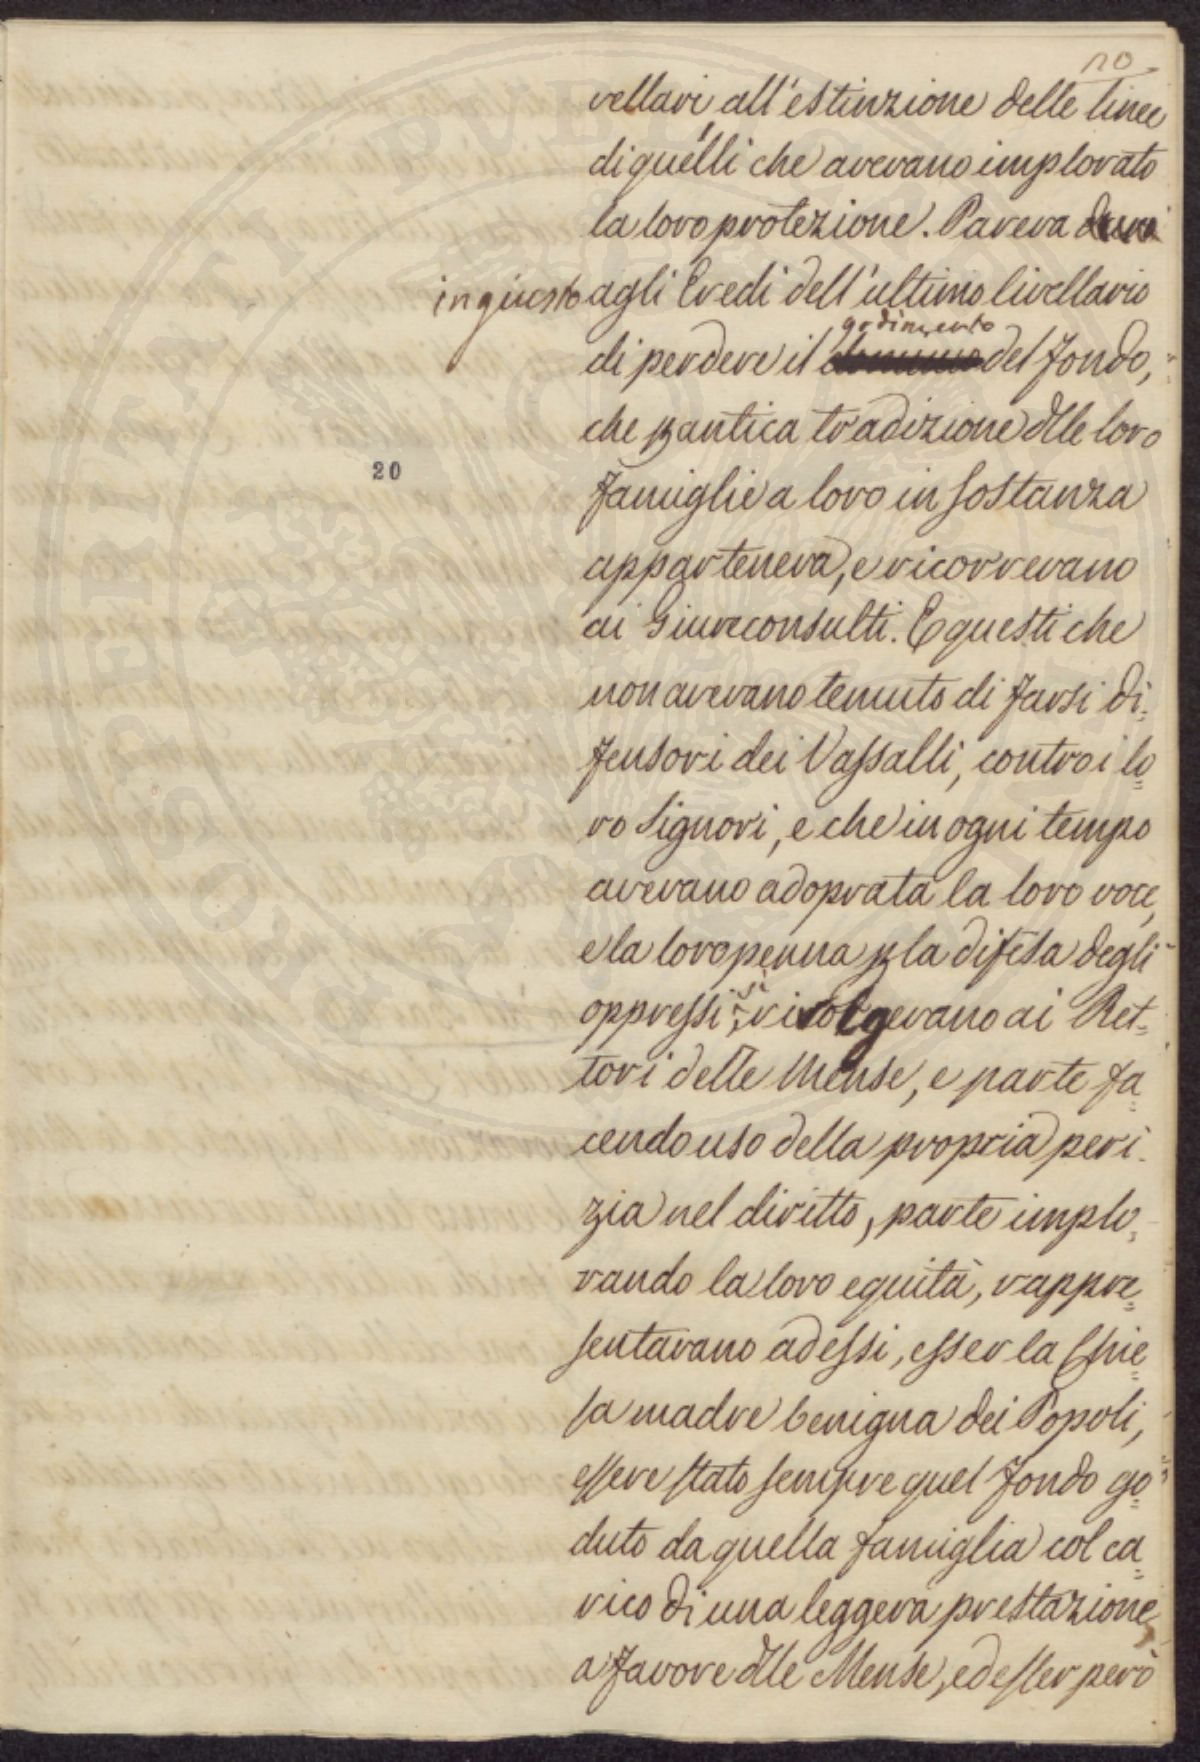 20
vellari all'estinzione delle linee
di quelli che avevano implorato
la loro protezione. Pareva duro
ingiusto agli Eredi dell'ultimo livellario
godimento
di perdere il del fondo,
che p antica tradizione dlle loro
famiglie a loro in sostanza
apparteneva, e ricorrevano
ai Giureconsulti. E questi che
non avevano temuto di farsi di=
fensori dei Vassalli, contro i lo=
ro Signori, e che in ogni tempo
avevano adoprata la loro voce,
e la loro penna p la difesa degli
oppressi, si rivolgevano ai Ret=
tori delle Mense, e parte fa=
cendo uso della propria peri=
zia nel diritto, parte implo=
rando la loro equità, rappre=
sentavano ad essi, esser la Chie=
sa madre benigna dei Popoli,
essere stato sempre quel fondo go=
duto da quella famiglia col ca=
rico di una leggera prestazione
a favore dlle Mense, ed esser però
20